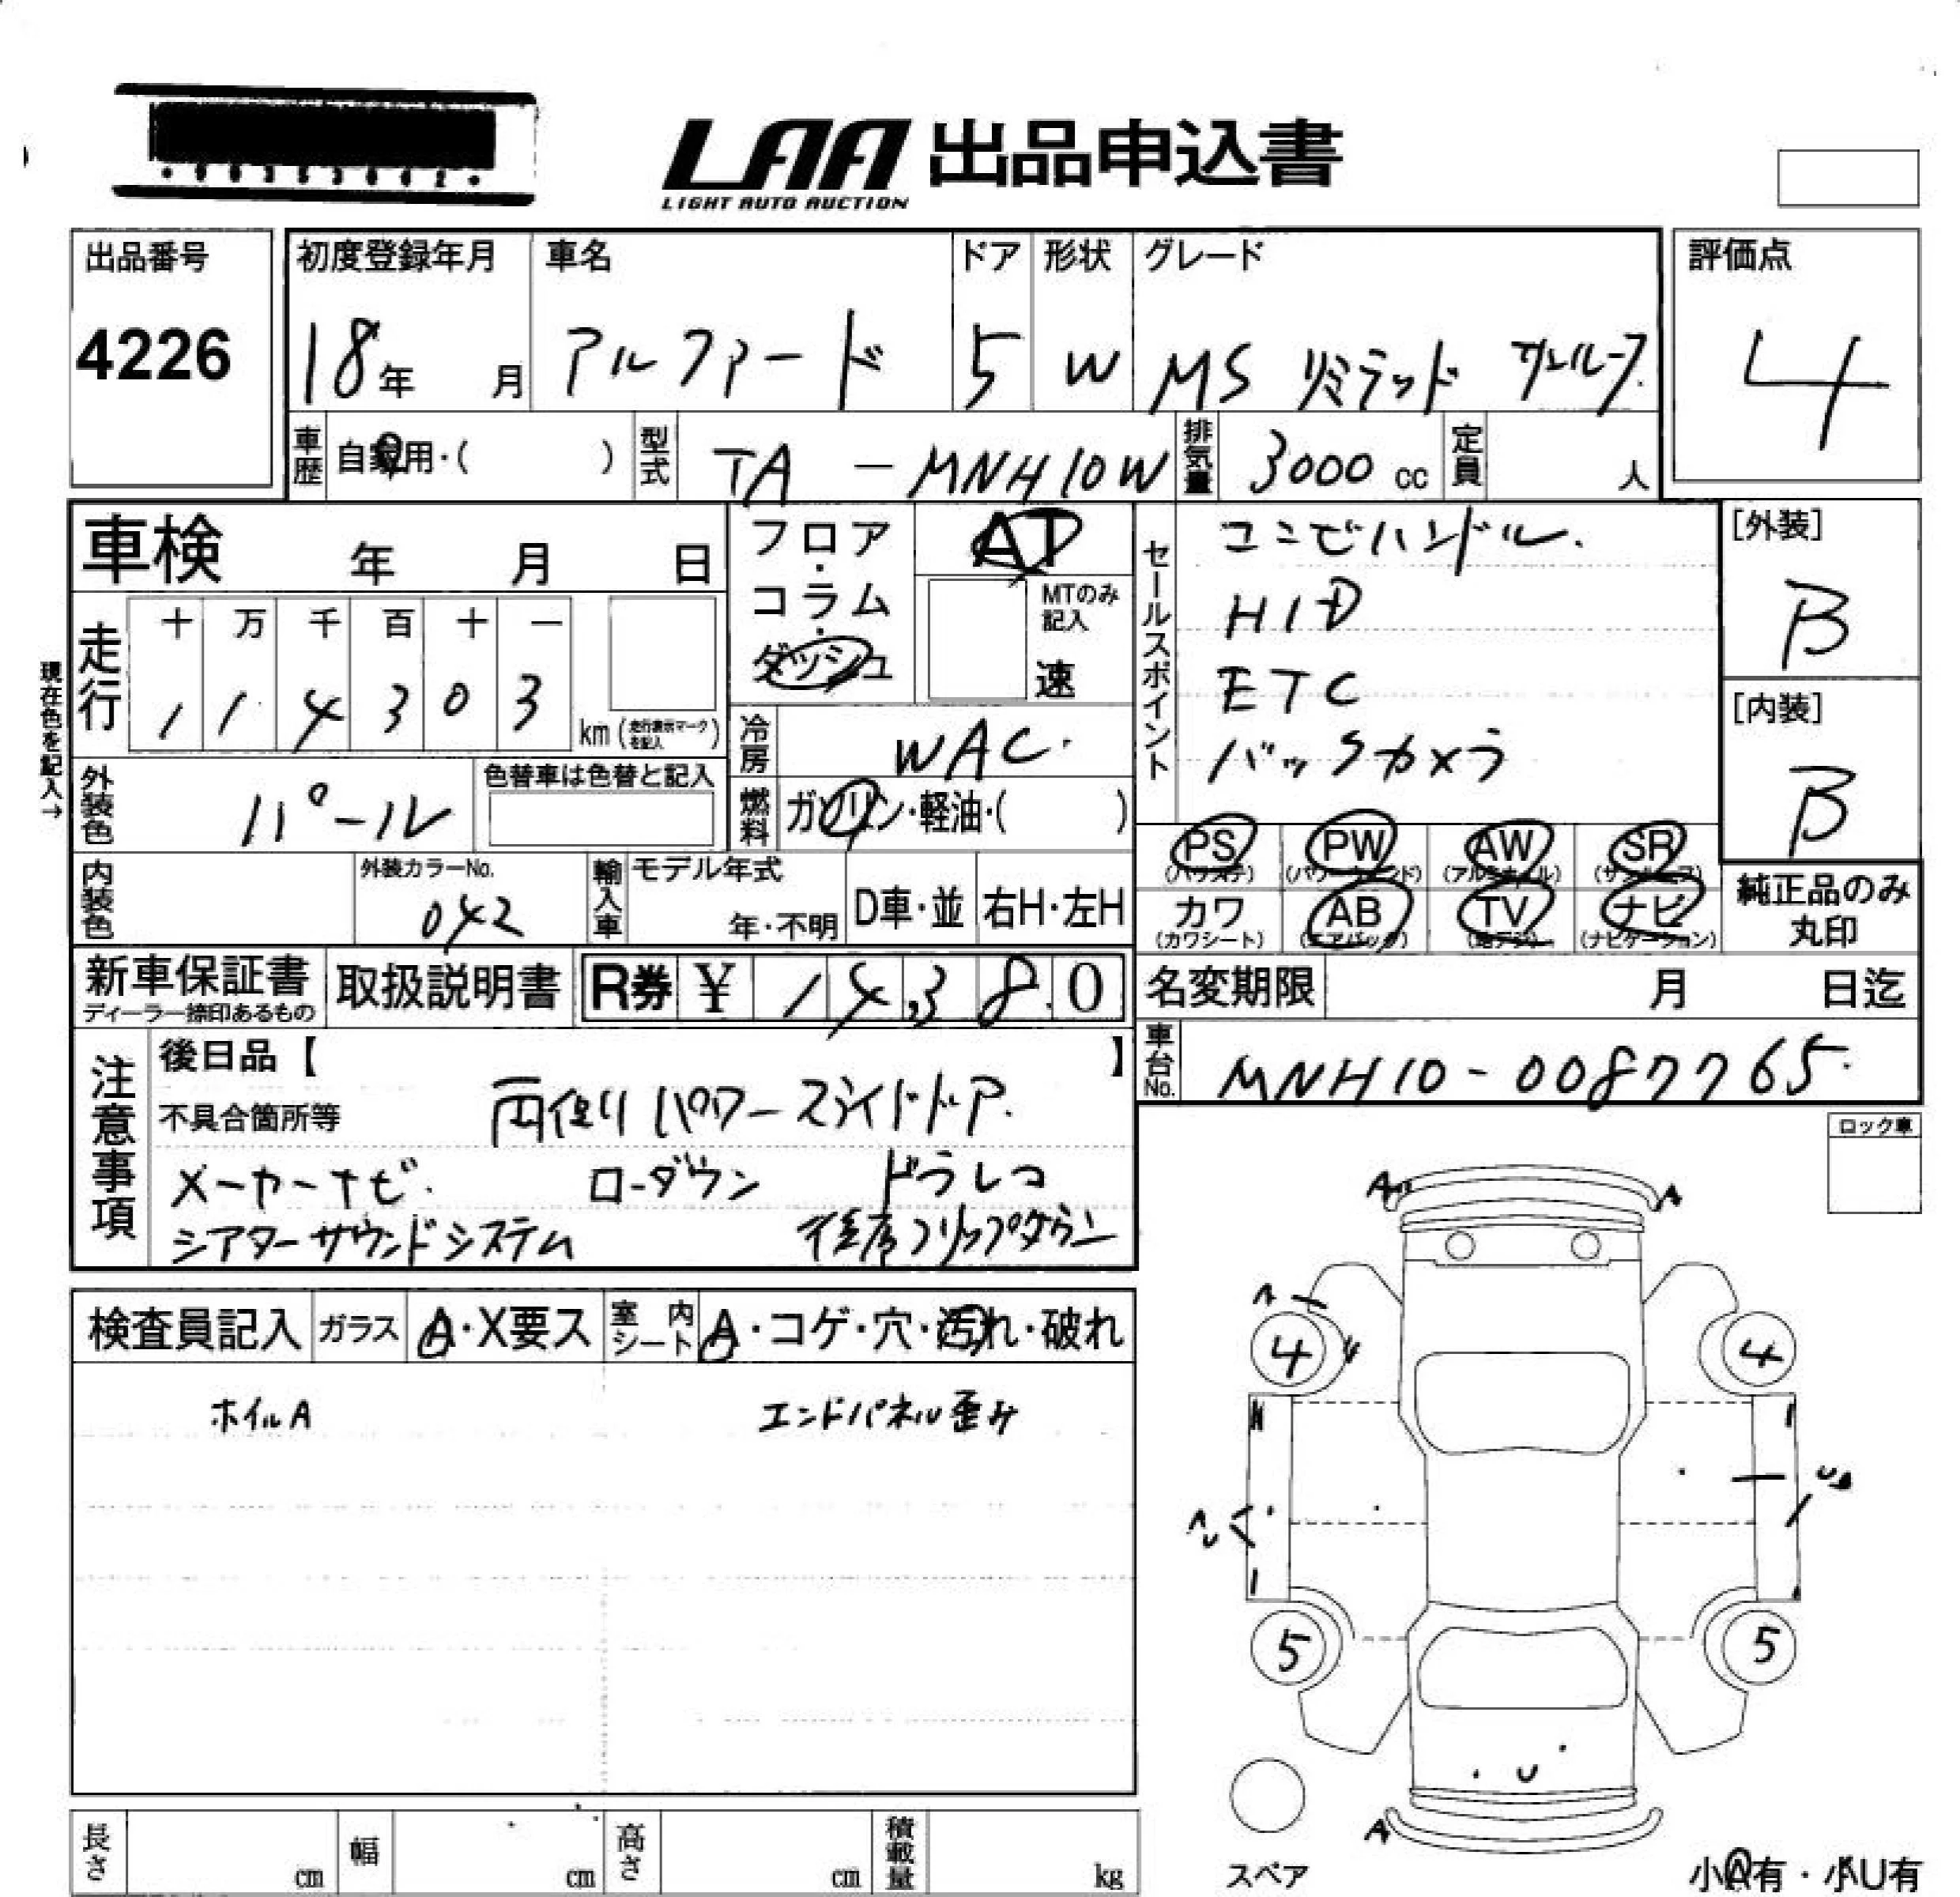 LAA 出品申込書
LIGHT AUTO AUCTION
出品番号 初度登録年月 車名 ドア 形状 グレード 評価点
4226 18年 月 アルファード 5 W MS リミテッド 4
車歴 自家用・( ) 型式 TA - MNH10W 排気量 3000 cc 定員 人
車検 年 月 日
フロア・コラム・ダッシュ
AT
MTのみ記入
速
セールスポイント
コンビハンドル.
HID
ETC
バックカメラ
[外装]
B
[内装]
B
現在色を記入→
走行 十 万 千 百 十 一
1 1 4 3 0 3 km (走行表示マークを記入)
冷房 WAC.
外装色 パール 色替車は色替と記入
燃料 ガソリン・軽油・( )
PS (パワステ) PW (パワーウィンド) AW (アルミホイル) SR (サンルーフ)
カワ (カワシート) AB (エアバック) TV (地デジ) ナビ (ナビゲーション)
純正品のみ
丸印
内装色 外装カラーNo. 042 輸入車 モデル年式 年・不明 D車・並 右H・左H
新車保証書 ディーラー捺印あるもの 取扱説明書 R券 ¥ 14,380
名変期限 月 日迄
車台No. MNH10-0087765.
注意事項
後日品【 】
不具合箇所等 両側パワースライドドア.
メーカーナビ. ローダウン ドラレコ
シアターサウンドシステム 後席フリップダウン
ロック車
検査員記入 ガラス A・X要ス 室内シート A・コゲ・穴・汚れ・破れ
ホイルA エンドパネル歪み
A A
4 4
5 5
U
A
スペア
小A有・小U有
長さ cm 幅 cm 高さ cm 積載量 kg